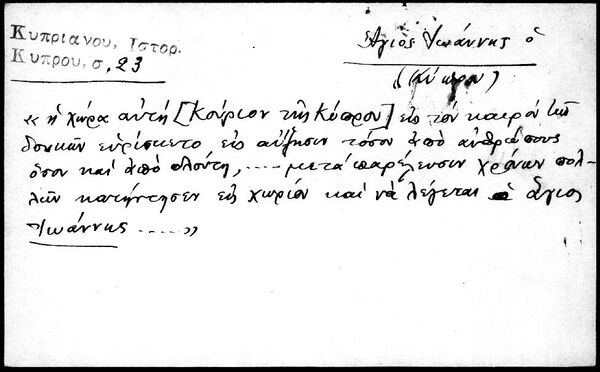 Κυπριανου, Ιστορ.
Κυπρου, σ. 23
Ἅγιος Ἰωάννης ὁ
(Κύπρου)
« ἡ χώρα αὐτή [Κούριον τῆς Κύπρου] εἰς τόν καιρόν τῶν
δουκῶν εὑρίσκετο εἰς αὔξησιν τόσον ἀπό ἀνθρώπους
ὅσον καί ἀπό πλούτη, .... μετά παρέλευσιν χρόνων πολ-
λῶν κατήντησεν εἰς χωρίον καί νά λέγεται ὁ ἅγιος
Ἰωάννης ..... »